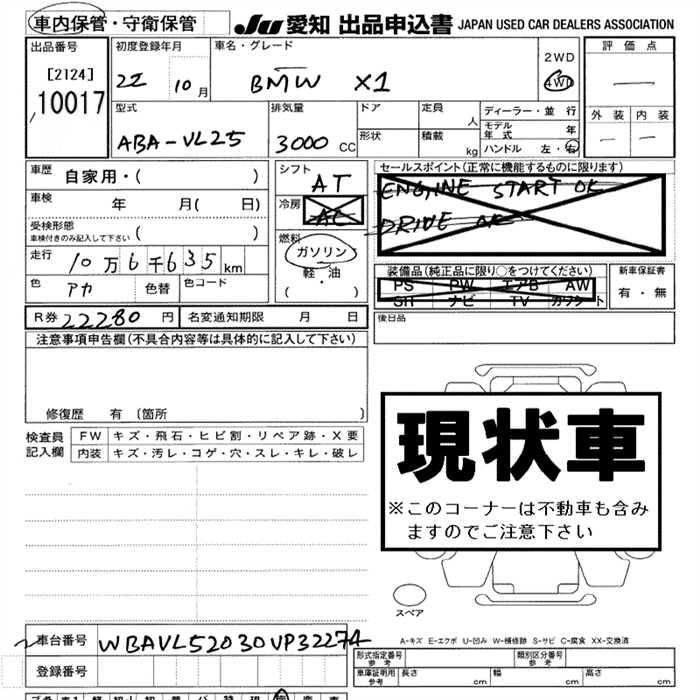 車内保管・守衛保管 JU 愛知 出品申込書 JAPAN USED CAR DEALERS ASSOCIATION
出品番号 初度登録年月 車名・グレード 2WD 評価点
[2124] 22 10月 BMW X1 4WD
10017 型式 排気量 ドア 定員 人 ディーラー・並行 外装 内装
ABA-VL25 3000 CC 形状 積載 kg モデル年式 年
ハンドル 左・右
車歴 自家用・( ) シフト AT セールスポイント(正常に機能するものに限ります)
車検 年 月( 日) 冷房 AC ENGINE START OK
受検形態 ( ) DRIVE OK
車検付きのみ記入して下さい
走行 10万6千635km 燃料 ガソリン 装備品(純正品に限り○をつけてください) 新車保証書
色 アカ 色替 色コード 軽・油 PS PW エアB AW 有・無
( ) SH ナビ TV カワシート
R券 22280円 名変通知期限 月 日 後日品
注意事項申告欄(不具合内容等は具体的に記入して下さい)
修復歴 有 〔箇所 〕
検査員記入欄 FW キズ・飛石・ヒビ割・リペア跡・X要
内装 キズ・汚レ・コゲ・穴・スレ・キレ・破レ
現状車
※このコーナーは不動車も含み
ますのでご注意下さい
スペア
A-キズ E-エクボ U-凹み W-補修跡 S-サビ C-腐食 XX-交換済
車台番号 WBAVL52030VP32274
登録番号
形式指定番号 参考 類別区分番号 参考
車庫証明用 参考 長さ cm 幅 cm 高さ cm